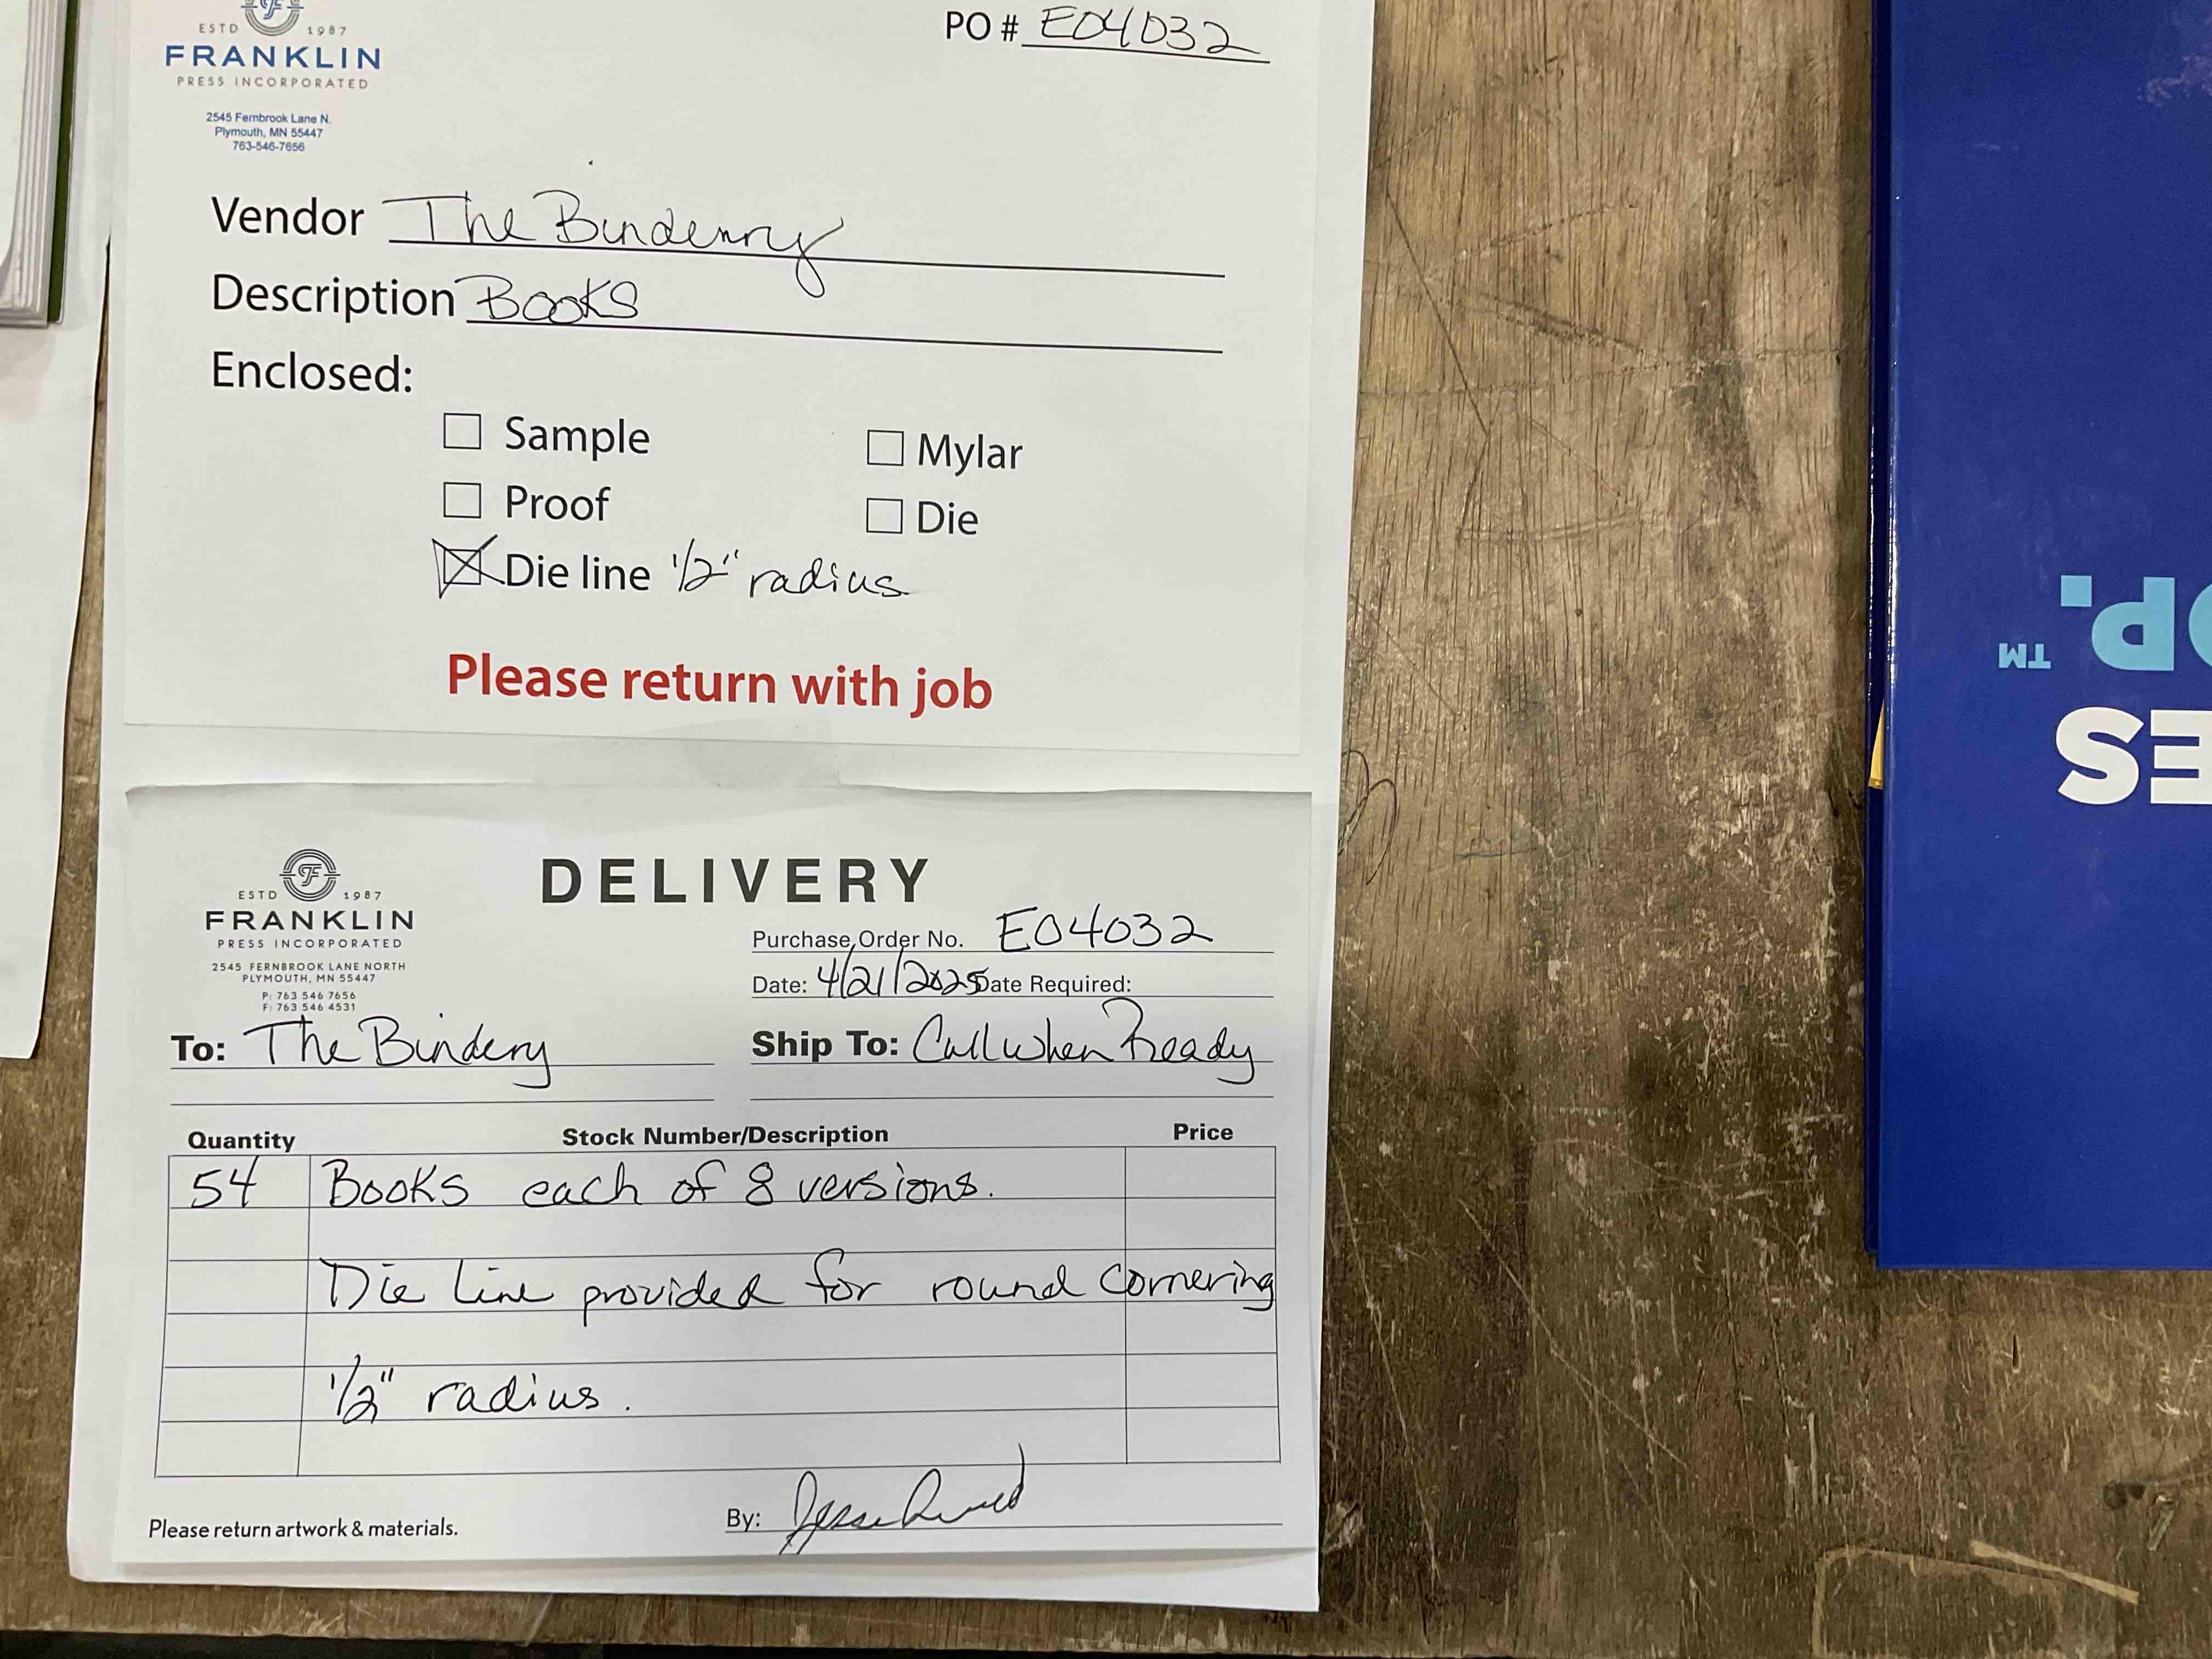 ESTD 1987
FRANKLIN
PRESS INCORPORATED
2545 Fernbrook Lane N.
Plymouth, MN 55447
763-546-7656
PO # E04032
Vendor The Bindenry
Description Books
Enclosed:
Sample
Mylar
Proof
Die
Die line 1/2" radius
Please return with job
DELIVERY
F
ESTD 1987
FRANKLIN
PRESS INCORPORATED
2545 FERNBROOK LANE NORTH
PLYMOUTH, MN 55447
P: 763 546 7656
F: 763 546 4531
Purchase Order No. E04032
Date: 4/21/2025 Date Required:
To: The Bindery
Ship To: Call when Ready
Quantity Stock Number/Description Price
54 Books each of 8 versions.
Die Line provided for round cornering
1/2" radius.
Please return artwork & materials.
By: Jesse
OP.
TM
ES